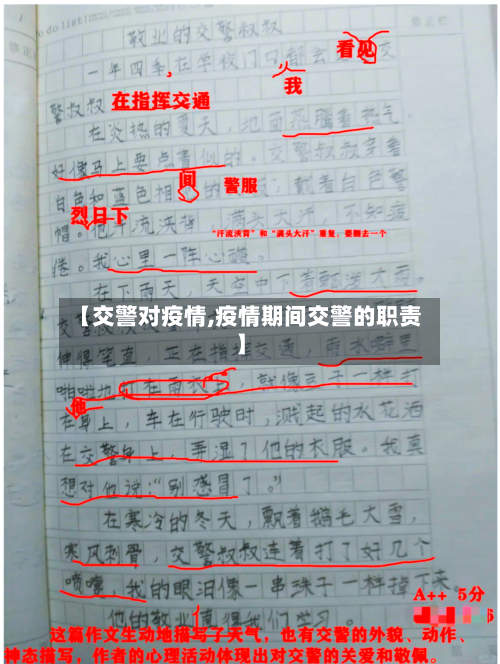 敬业的交警叔叔
一年四季在学校门口都会看见交
我
警叔叔在指挥交通
在炎热的夏天，地面热腾着热气。
好像马上要点着似的。交警叔叔穿着
白色和蓝色相间的警服，戴着白色警
帽。烈日下他汗流浃背，满头大汗，不知疲
"汗流浃背"和"满头大汗"重复，要删去一个
倦。我心里一阵心疼。
在下雨天，天空中下着
【交警对疫情,疫情期间交警的职责
】
伸得笔直，正在指挥交通，雨水噼里
啪啦地打在雨衣上，就像豆子一样打
他
在身上，车在行驶时，溅起的水花洒
在交警身上，弄湿了他的衣服。我真
想对他说："别感冒了。"
在寒冷的冬天，飘着鹅毛大雪，
寒风刺骨，交警叔叔连着打了好几个
喷嚏，我的眼泪像一串珠子一样掉下来。
A++ 5分
他的敬业值得我们学习。
这篇作文生动地描写了天气，也有交警的外貌、动作、
神态描写，作者的心理活动体现出对交警的关爱和敬佩。